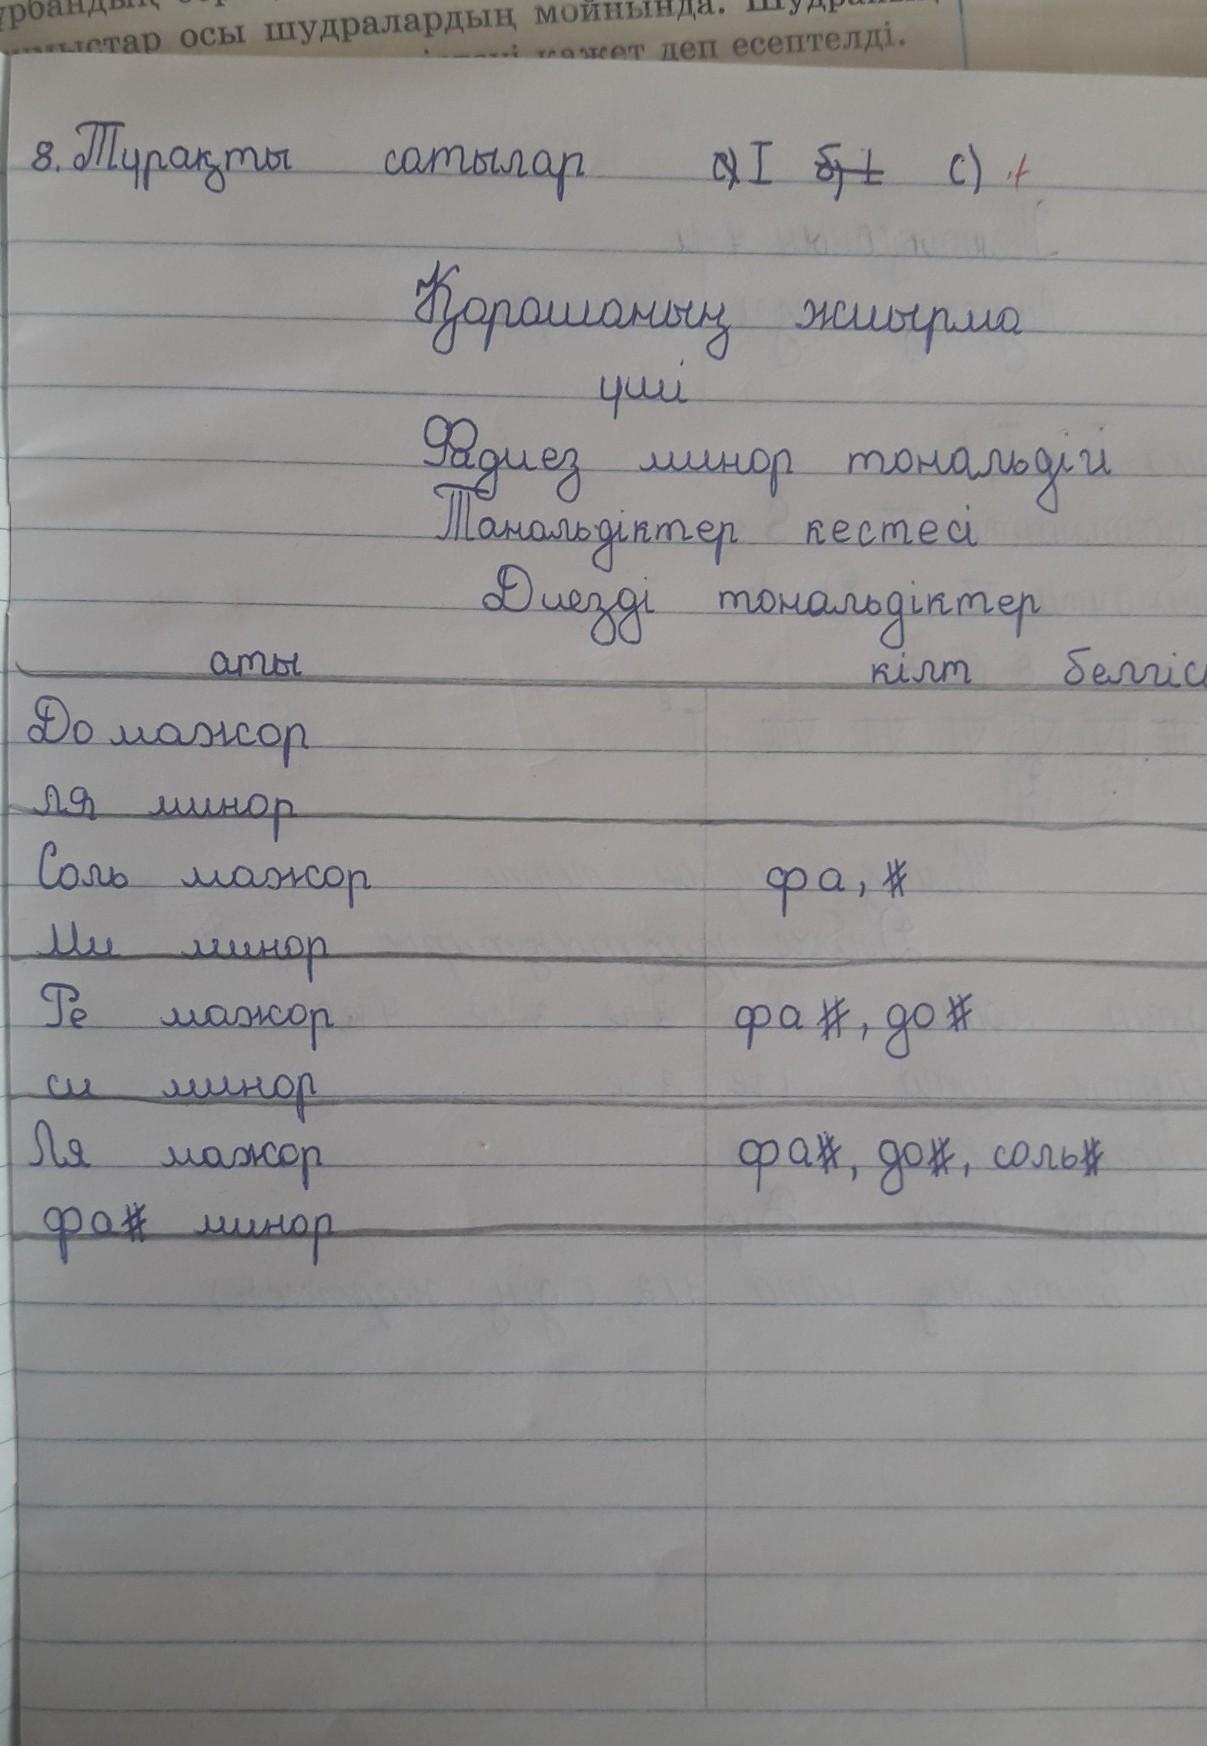 шудралардың мойнында.
осы қажет деп есептелді.
8. Тұрақты сатылар а) I б) I с) +
Қарашаның жиырма
үші
Фадиез минор тональдігі
Танальдіктер кестесі
Диезді тональдіктер
аты кілт белгісі
До мажор
ля минор
Соль мажор фа, #
Ми минор
Ре мажор фа #, до #
си минор
Ля мажор фа#, до#, соль#
фа# минор